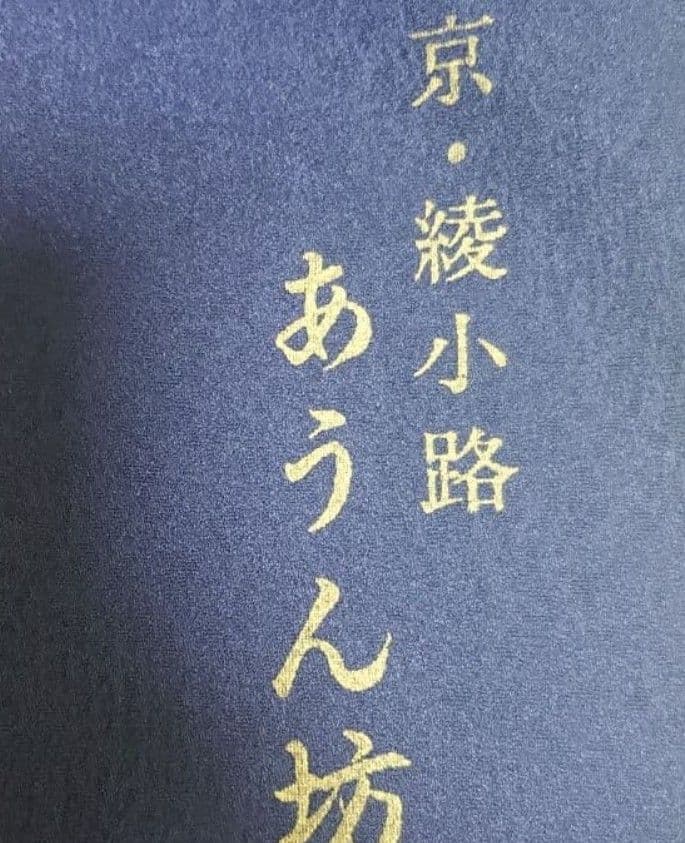 京・綾小路
あうん坊